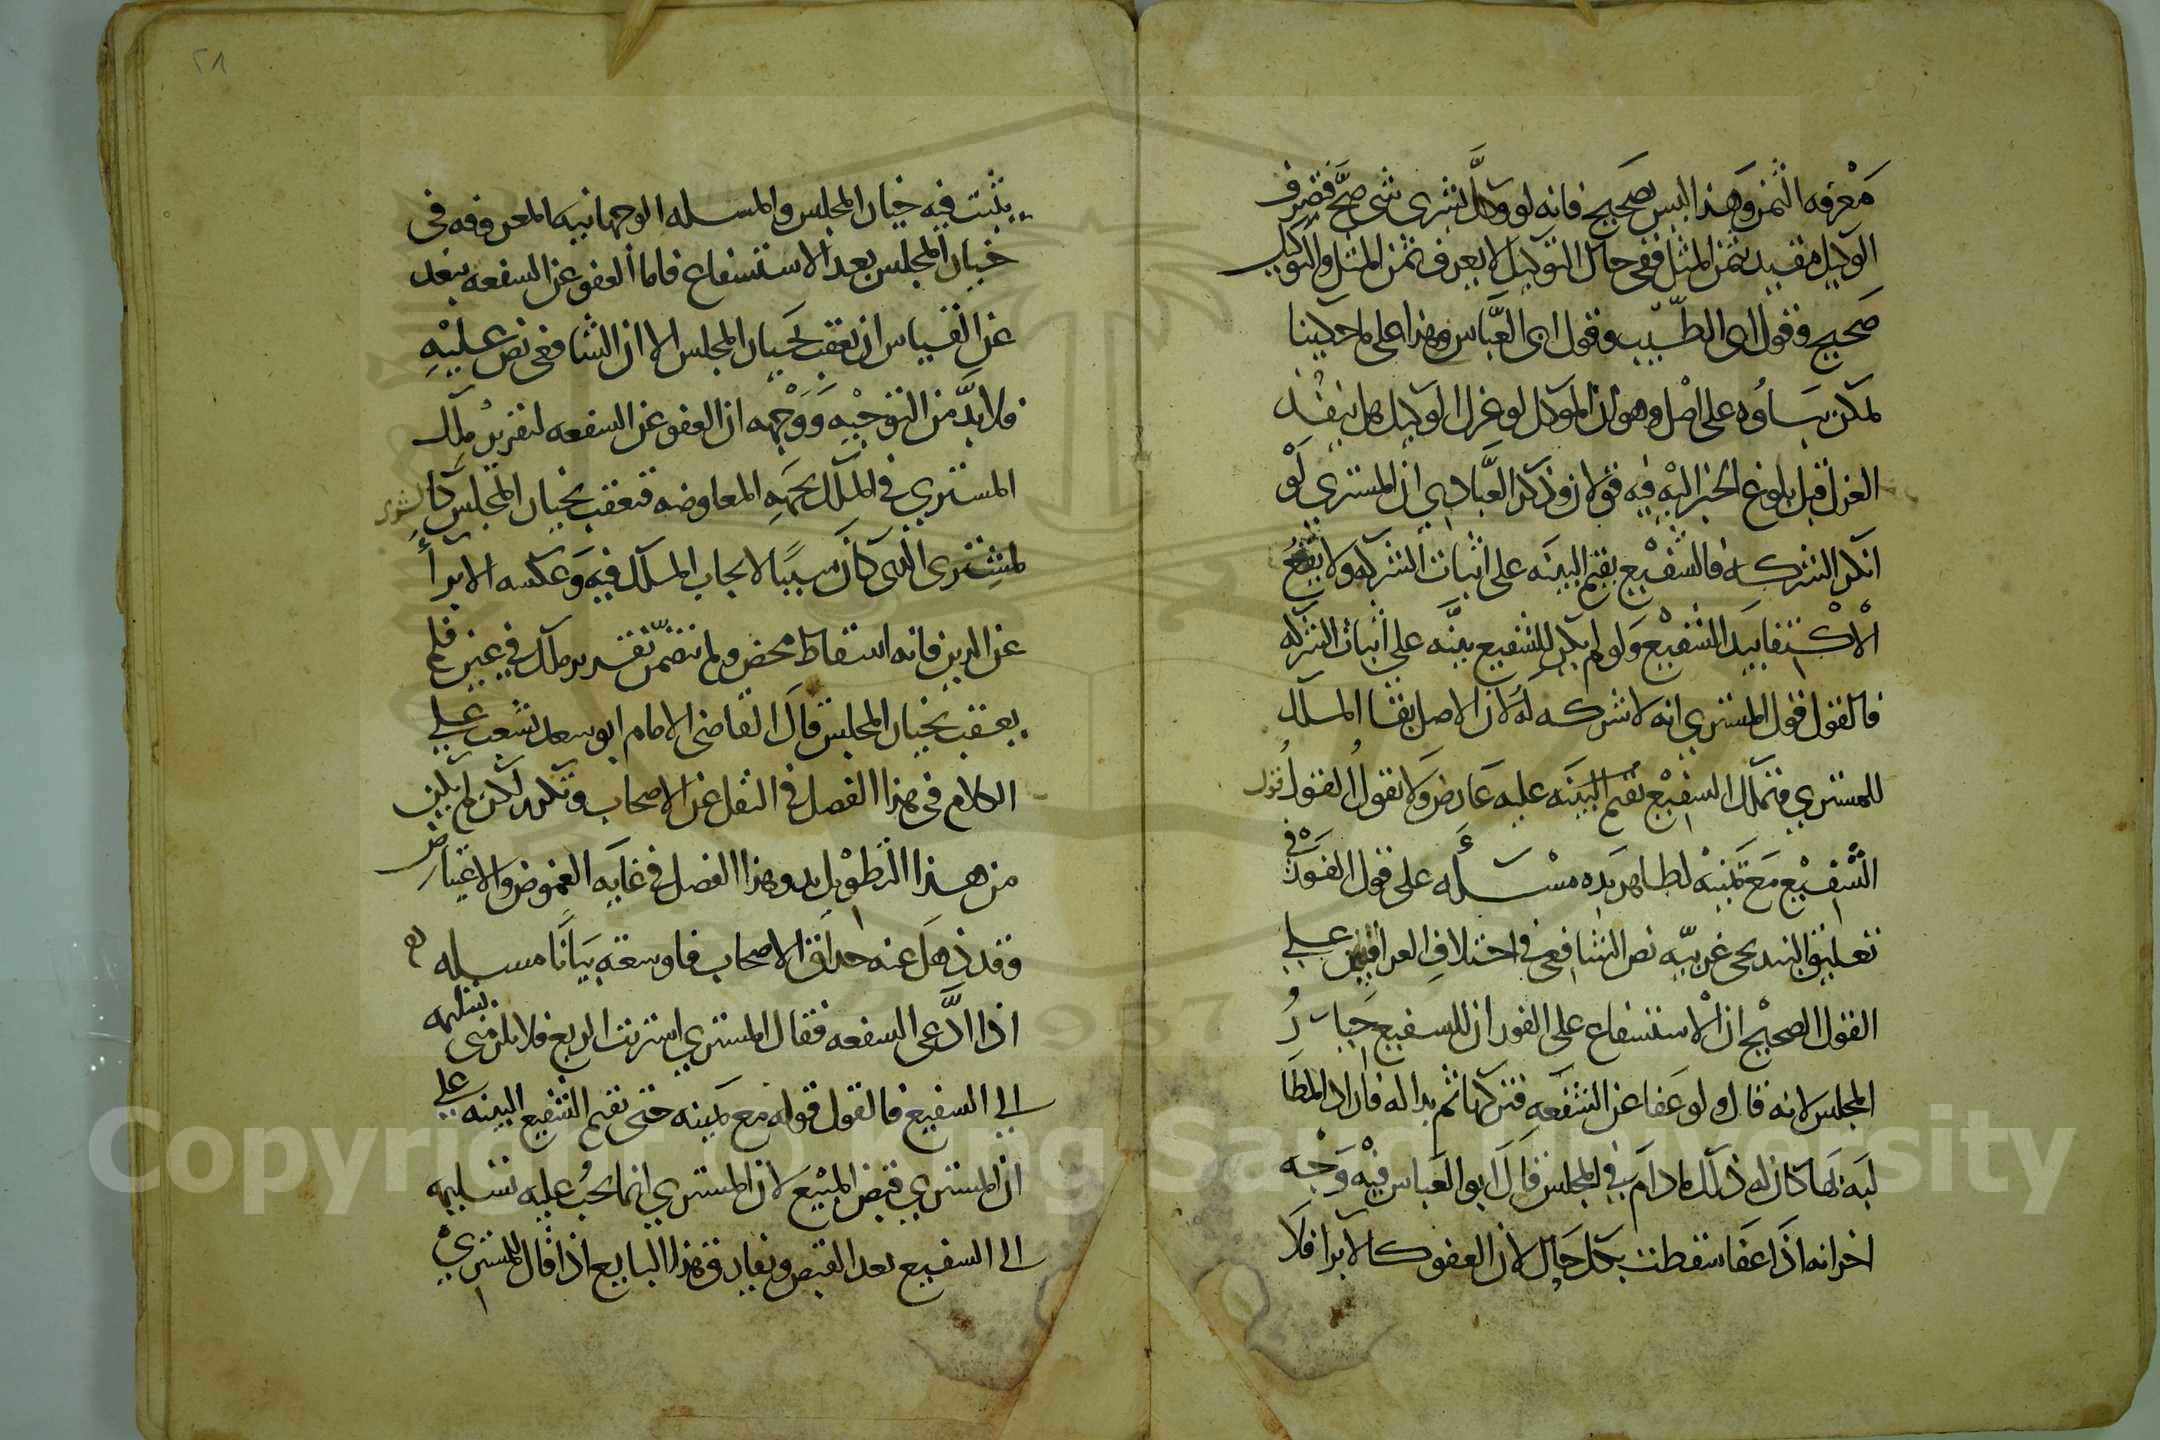 معرفه الثمن وهذا ليس بصحيح فانه لو وكل بشرى شى صح فتصرف
الوكيل مقيد بثمن المثل ففي حال التوكيل لا يعرف ثمن المثل والتوكيل
صحيح وقول ابى الطيب وقول ابى العباس وهذا على ما حكينا
يمكن بناوه على اصل وهو ان الموكل لو عزل الوكيل هل ينفذ
العزل قبل بلوغ الخبر اليه فيه قولان وذكر العبادي ان المشتري لو
انكر الشركه فالشفيع يقيم البينه على اثبات الشركه ولا يقع
الاكتفا بيد الشفيع ولو لم يكن للشفيع بينه على اثبات الشركه
فالقول قول المشتري انه لا شركه له لان الاصل بقا الملك
للمشتري فتملك الشفيع بقيم البينه عليه عارض ولا نقول القول قول
الشفيع مع يمينه لظاهر يده مسأله على قول الفور في
تعليق البندنيجى غريبه نص الشافعي في اختلاف العراقيين على
القول الصحيح ان الاستشفاع على الفور ان للشفيع خيار
المجلس لانه قال ولو عفا عن الشفعه فتركها ثم بدا له فان اراد المطا
لبه بها كان له ذلك ما دام في المجلس قال ابو العباس فيه وجه
اخر انه اذا عفا سقطت بكل حال لان العفو كالابرا فلا
٢٨
يثبت فيه خيار المجلس والمسله الوجهان المعروفه في
خيار المجلس بعد الاستشفاع فاما العفو عن الشفعه يبعد
عن القياس ان يعقب بخيار المجلس الا ان الشافعي نص عليه
فلا بد من التوجيه ووجهه ان العفو عن الشفعه لتقرير ملك
المشتري في الملك بجهه المعاوضه فتعقب بخيار المجلس كا
لمشترى التى كان سببا لايجاب الملك فيه وعكسه الابرأ
عن الدين فانه اسقاط محض ولم يتضمن تقرير ملك في عين فلم
يعقب بخيار المجلس قال القاضى الامام ابو سعد تشعب على
الكلام في هذا الفصل في النقل عن الاصحاب وتكرر لكن لم يكن
من هذا التطويل بد وهذا الفصل في غايه الغموض والاعتياض
وقد ذهل عنه حذاق الاصحاب فاوسعته بيانا مسله
اذا ادعى الشفعه فقال المشتري اشتريت الربع فلا يلزمني تسليمه
الى الشفيع فالقول قوله مع يمينه حتى يقيم الشفيع البينه على
ان المشتري قبض المبيع لان المشتري انما يجب عليه تسليمه
الى الشفيع بعد القبض ويفارق هذا البايع اذا قال المشتري